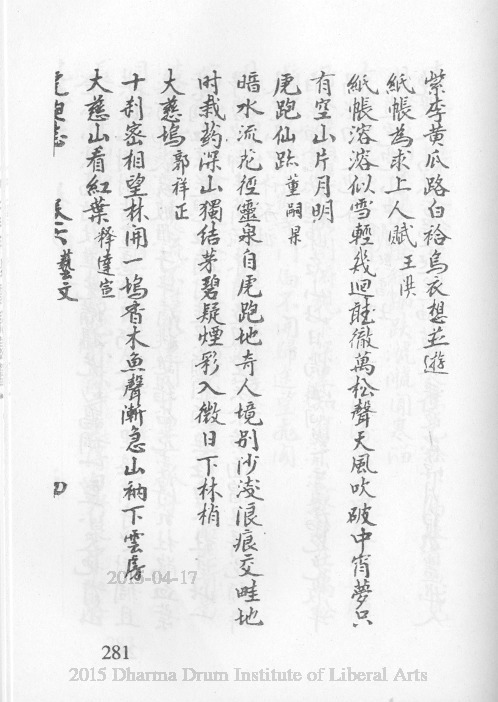 紫李黄瓜路白袷烏衣想並遊
紙帳為求上人賦 王洪
紙帳溶溶似雪輕幾迴聽徹萬松聲天風吹破中宵夢只
有空山片月明
虎跑仙跡 董嗣杲
暗水流花徑靈泉自虎跑地奇人境別沙淺浪痕交畦地
时栽葯深山獨結茅碧疑煙彩入微日下林梢
大慈塢 郭祥正
十刹密相望林開一塢香木魚聲漸急山衲下雲房
大慈山看紅葉 釋達宣
虎跑志 卷六 藝文
2015-04-17
281
2015 Dharma Drum Institute of Liberal Arts